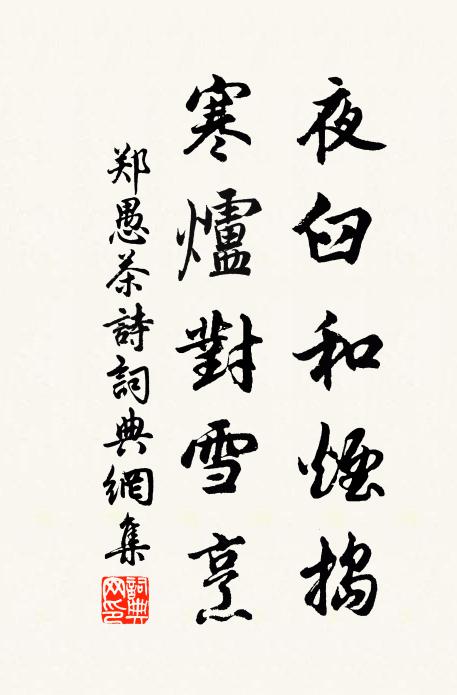 夜臼和煙搗
寒爐對雪烹
郑愚茶詩詞典網集
詞典網印